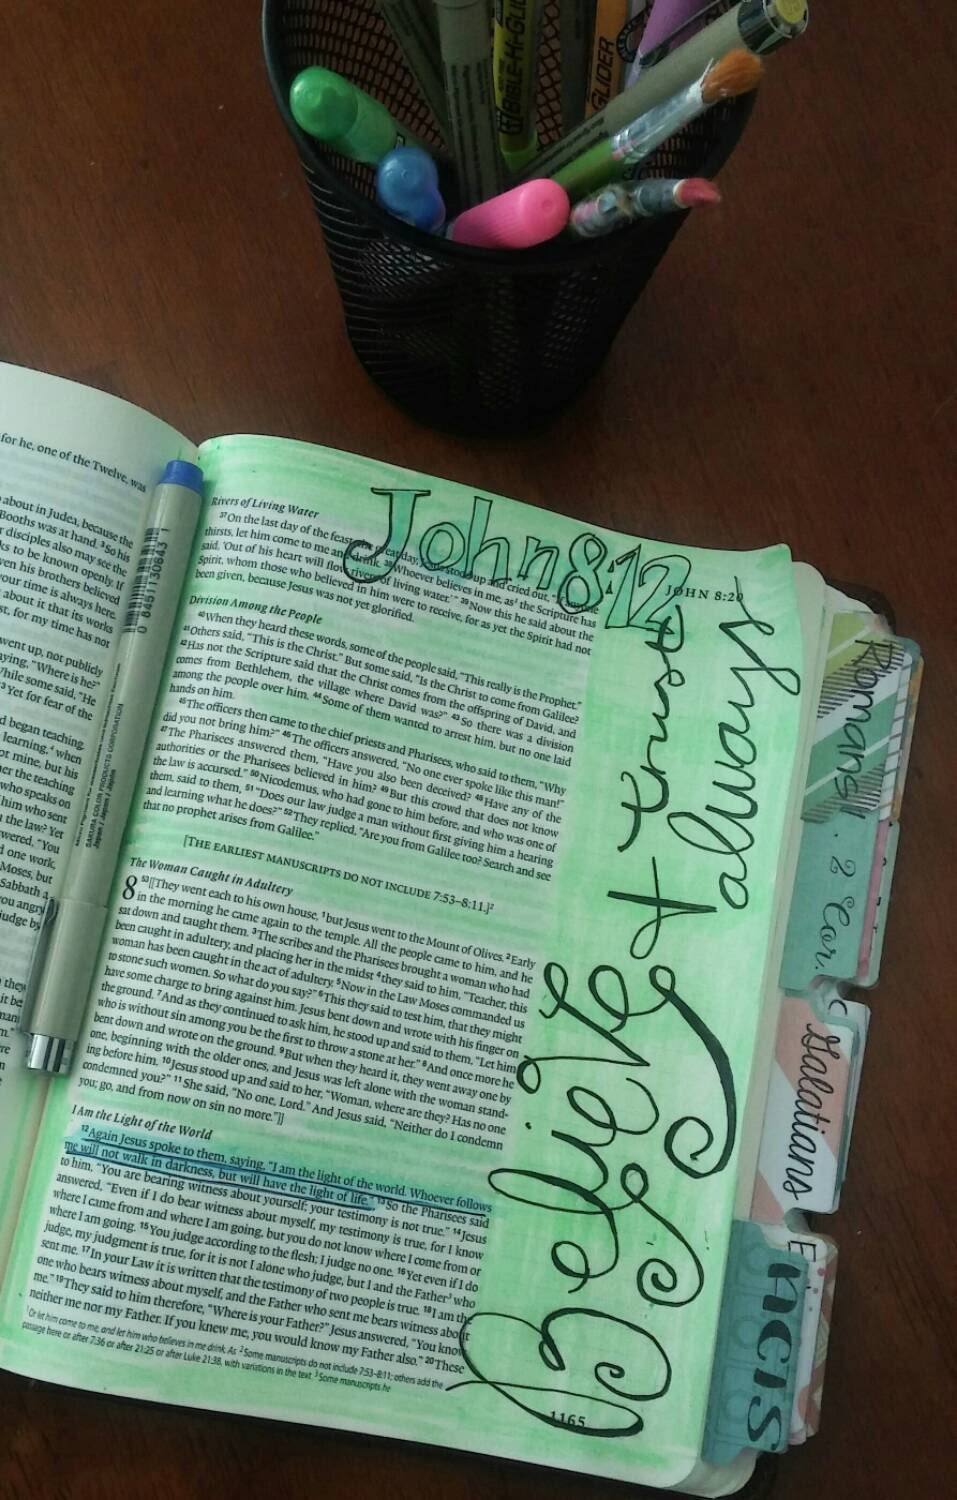 BIBLE-HI-GLI
GLIDER
for he, one of the Twelve, was
about in Judea, because the
Booths was at hand. 3 So his
disciples also may see the
ks to be known openly. If
ven his brothers believed
your time is always here.
about it that its works
st, for my time has not
went up, not publicly
aying, "Where is he?"
While some said, "He
Yet for fear of the
d began teaching.
learning, when
ot mine, but his
er the teaching
who speaks on
him who sent
n the law? Yet
wered, "You
d one work,
Moses, but
Sabbath a
you angry
judge by
they
it be
0 84511 30843 1
SAKURA COLOR PRODUCTS CORPORATION
Japan / Japon / Japón
John 8:12
JOHN 8:20
Rivers of Living Water
37 On the last day of the feast, the great day, Jesus stood up and cried out, "If anyone
thirsts, let him come to me and drink. 38 Whoever believes in me, as the Scripture has
said, 'Out of his heart will flow rivers of living water.'" 39 Now this he said about the
Spirit, whom those who believed in him were to receive, for as yet the Spirit had not
been given, because Jesus was not yet glorified.
Division Among the People
40 When they heard these words, some of the people said, "This really is the Prophet."
41 Others said, "This is the Christ." But some said, "Is the Christ to come from Galilee?
42 Has not the Scripture said that the Christ comes from the offspring of David, and
comes from Bethlehem, the village where David was?" 43 So there was a division
among the people over him. 44 Some of them wanted to arrest him, but no one laid
hands on him.
45 The officers then came to the chief priests and Pharisees, who said to them, "Why
did you not bring him?" 46 The officers answered, "No one ever spoke like this man!"
47 The Pharisees answered them, "Have you also been deceived? 48 Have any of the
authorities or the Pharisees believed in him? 49 But this crowd that does not know
the law is accursed." 50 Nicodemus, who had gone to him before, and who was one of
them, said to them, 51 "Does our law judge a man without first giving him a hearing
and learning what he does?" 52 They replied, "Are you from Galilee too? Search and see
that no prophet arises from Galilee."
[THE EARLIEST MANUSCRIPTS DO NOT INCLUDE 7:53–8:11.]2
The Woman Caught in Adultery
8 53 [[They went each to his own house, 1 but Jesus went to the Mount of Olives. 2 Early
in the morning he came again to the temple. All the people came to him, and he
sat down and taught them. 3 The scribes and the Pharisees brought a woman who had
been caught in adultery, and placing her in the midst 4 they said to him, "Teacher, this
woman has been caught in the act of adultery. 5 Now in the Law Moses commanded us
to stone such women. So what do you say?" 6 This they said to test him, that they might
have some charge to bring against him. Jesus bent down and wrote with his finger on
the ground. 7 And as they continued to ask him, he stood up and said to them, "Let him
who is without sin among you be the first to throw a stone at her." 8 And once more he
bent down and wrote on the ground. 9 But when they heard it, they went away one by
one, beginning with the older ones, and Jesus was left alone with the woman stand-
ing before him. 10 Jesus stood up and said to her, "Woman, where are they? Has no one
condemned you?" 11 She said, "No one, Lord." And Jesus said, "Neither do I condemn
you; go, and from now on sin no more."]]
I Am the Light of the World
12 Again Jesus spoke to them, saying, "I am the light of the world. Whoever follows
me will not walk in darkness, but will have the light of life." 13 So the Pharisees said
to him, "You are bearing witness about yourself; your testimony is not true." 14 Jesus
answered, "Even if I do bear witness about myself, my testimony is true, for I know
where I came from and where I am going, but you do not know where I come from or
where I am going. 15 You judge according to the flesh; I judge no one. 16 Yet even if I do
judge, my judgment is true, for it is not I alone who judge, but I and the Father3 who
sent me. 17 In your Law it is written that the testimony of two people is true. 18 I am the
one who bears witness about myself, and the Father who sent me bears witness about
me." 19 They said to him therefore, "Where is your Father?" Jesus answered, "You know
neither me nor my Father. If you knew me, you would know my Father also." 20 These
1 Or let him come to me, and let him who believes in me drink. As 2 Some manuscripts do not include 7:53–8:11; others add the
passage here or after 7:36 or after 21:25 or after Luke 21:38, with variations in the text 3 Some manuscripts he
1165
Believe + trust
always
Romans!
2 Cor.
Galatians
E
ncis